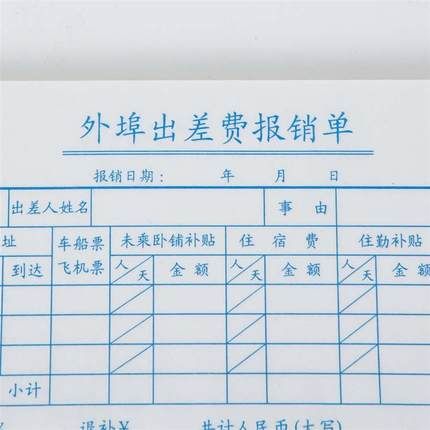 外埠出差费报销单
报销日期： 年 月 日
出差人姓名 事由
址 车船票 飞机票 未乘卧铺补贴 住宿费 住勤补贴
到达 人/天 金额 人/天 金额 人/天 金额
小计
¥ 退补¥ 共计人民币(大写)